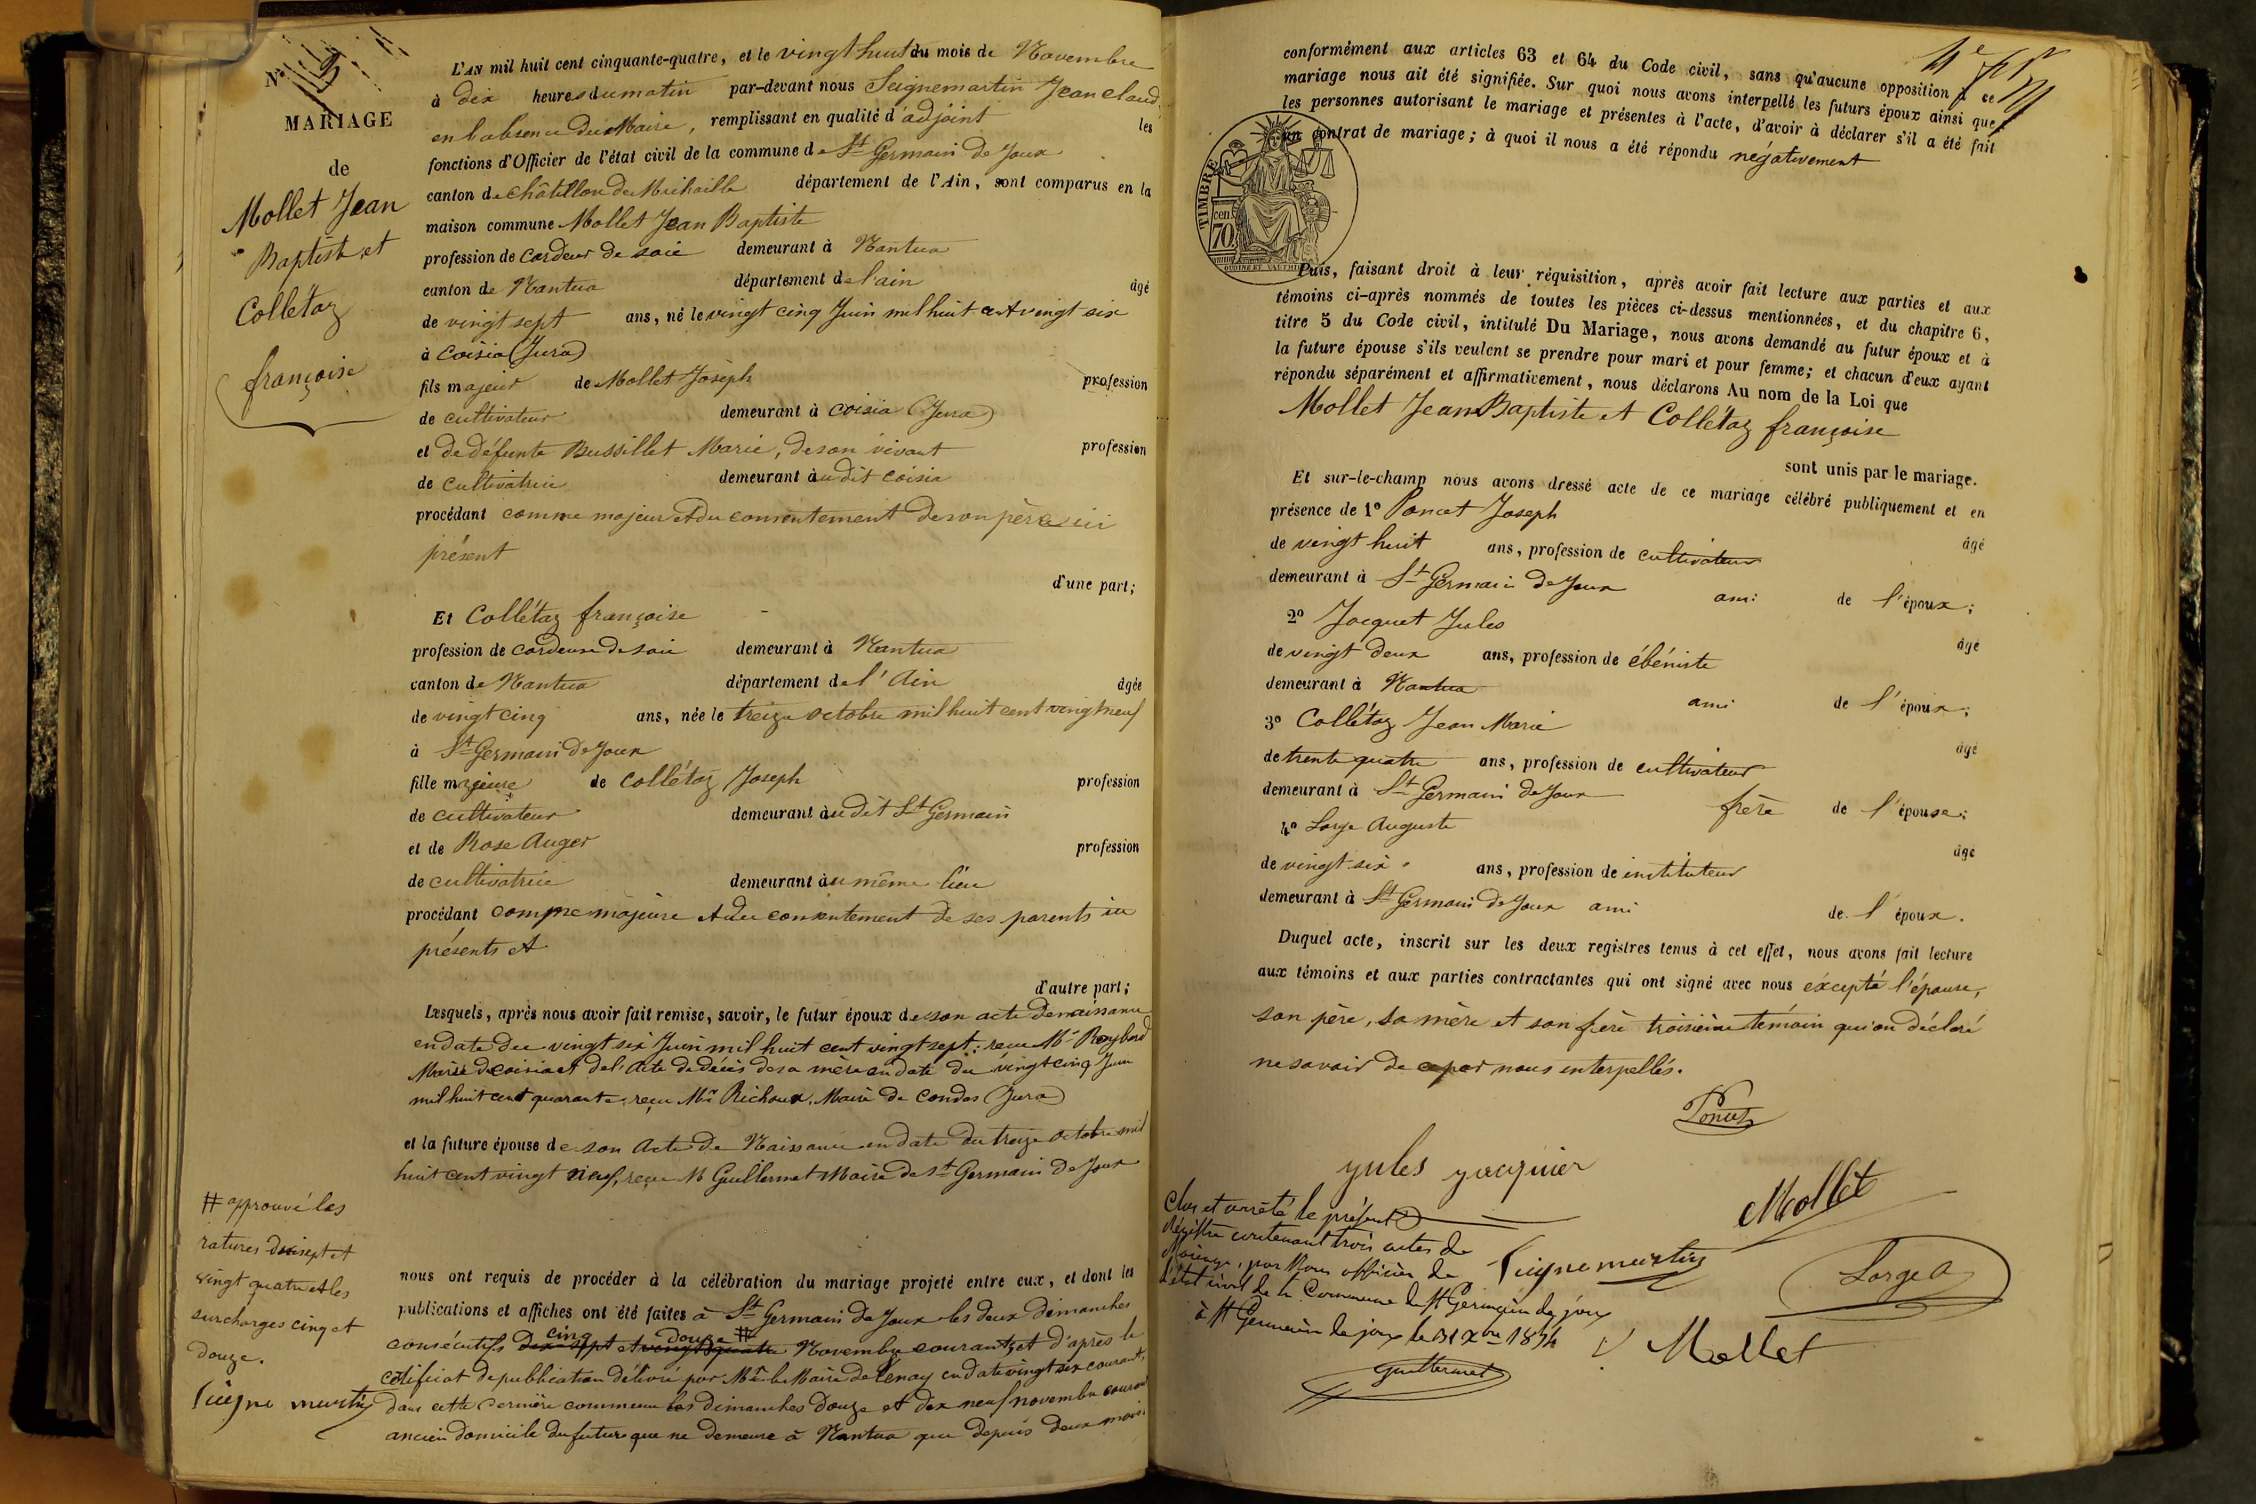 N° 3
MARIAGE
de
Mollet Jean
Baptiste et
Collétaz
françoise
L'AN mil huit cent cinquante-quatre, et le vingt huit du mois de Novembre
à dix heures du matin par-devant nous Seignemartin Jean Claude
en l'absence du Maire, remplissant en qualité d'adjoint les
fonctions d'Officier de l'état civil de la commune de St Germain de Joux
canton de Châtillon de Michaille département de l'Ain, sont comparus en la
maison commune Mollet Jean Baptiste
profession de Cardeur de soie demeurant à Nantua
canton de Nantua département de l'ain âgé
de vingt sept ans, né le vingt cinq Juin mil huit cent vingt six
à Coisia (Jura)
fils majeur de Mollet Joseph profession
de cultivateur demeurant à Coisia (Jura)
et de défunte Bussillet Marie, de son vivant profession
de cultivatrice demeurant audit Coisia
procédant comme majeur et du consentement de son père ici
présent
d'une part;
Et Collétaz françoise
profession de Cardeuse de soie demeurant à Nantua
canton de Nantua département de l'Ain âgée
de vingt cinq ans, née le treize octobre mil huit cent vingt neuf
à St Germain de Joux
fille majeure de Collétaz Joseph profession
de cultivateur demeurant audit St Germain
et de Rose Auger profession
de cultivatrice demeurant au même lieu
procédant comme majeure et du consentement de ses parents ici
présents et
d'autre part;
Lesquels, après nous avoir fait remise, savoir, le futur époux de son acte de naissance
en date du vingt six Juin mil huit cent vingt sept: reçu Mr
Maire de Coisia et de l'acte de décès de sa mère en date du vingt cinq Juin
mil huit cent quarante, reçu Mr Richoux, Maire de Condes (Jura)
et la future épouse de son Acte de Naissance en date du treize octobre mil
huit cent vingt neuf, reçu M Guillermet Maire de St Germain de Joux
nous ont requis de procéder à la célébration du mariage projeté entre eux, et dont les
publications et affiches ont été faites à St Germain de Joux les deux dimanches
cinq douze #
consécutifs dix sept et vingt quatre Novembre courant, et d'après le
certificat de publication délivré par Mr le Maire de Tenay en date vingt six courant,
dans cette dernière commune les dimanches douze et dix neuf novembre courant
ancien domicile du future que ne demeure à Nantua que depuis deux mois
# approuvé les
ratures dix sept et
vingt quatre et les
surcharges cinq et
douze.
Seignemartin
conformément aux articles 63 et 64 du Code civil, sans qu'aucune opposition à ce
mariage nous ait été signifiée. Sur quoi nous avons interpellé les futurs époux ainsi que
les personnes autorisant le mariage et présentes à l'acte, d'avoir à déclarer s'il a été fait
un contrat de mariage; à quoi il nous a été répondu négativement
TIMBRE
cen.
70
OUDINÉ ET VAUTHIER
Puis, faisant droit à leur réquisition, après avoir fait lecture aux parties et aux
témoins ci-après nommés de toutes les pièces ci-dessus mentionnées, et du chapitre 6,
titre 5 du Code civil, intitulé Du Mariage, nous avons demandé au futur époux et à
la future épouse s'ils veulent se prendre pour mari et pour femme; et chacun d'eux ayant
répondu séparément et affirmativement, nous déclarons Au nom de la Loi que
Mollet Jean Baptiste et Collétaz françoise
sont unis par le mariage.
Et sur-le-champ nous avons dressé acte de ce mariage célébré publiquement et en
présence de 1° Poncet Joseph âgé
de vingt huit ans, profession de cultivateur
demeurant à St Germain de Joux ami de l'époux;
2° Jacquet Jules âgé
de vingt deux ans, profession de ébéniste
demeurant à Nantua ami de l'époux;
3° Collétaz Jean Marie âgé
de trente quatre ans, profession de cultivateur
demeurant à St Germain de Joux frère de l'épouse;
4° Lorge Auguste âgé
de vingt six ans, profession de instituteur
demeurant à St Germain de Joux ami de l'époux.
Duquel acte, inscrit sur les deux registres tenus à cet effet, nous avons fait lecture
aux témoins et aux parties contractantes qui ont signé avec nous excepté l'épouse,
son père, sa mère et son frère troisième témoin qui on déclaré
ne savoir de ce par nous interpellés.
Poncet
jules jacquier
Mollet
Seignemartin
Lorge A
Mollet
Clos et arrêté le présent
Régistre contenant trois actes de
Mariage, par Nous officier de
l'état civil de la Commune de St Germain de joux
à St Germain de joux le 31 Xbre 1854
Guillermet